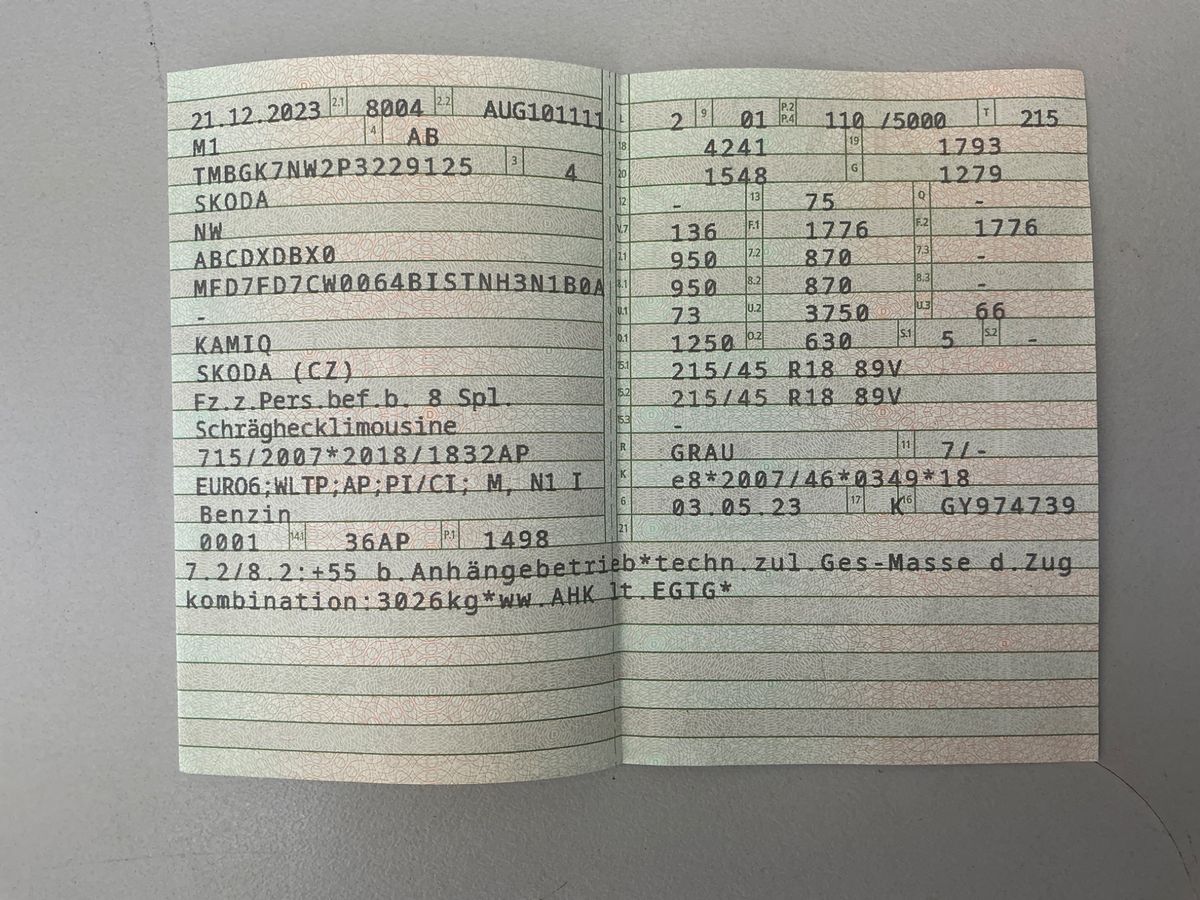 21.12.2023 2.1 8004 2.2 AUG101111
M1 4 AB
TMBGK7NW2P3229125 3 4
SKODA
NW
ABCDXDBX0
MFD7FD7CW0064BISTNH3N1B0A
-
KAMIQ
SKODA (CZ)
Fz.z.Pers.bef.b. 8 Spl.
Schräghecklimousine
715/2007*2018/1832AP
EURO6;WLTP;AP;PI/CI; M, N1 I
Benzin
0001 14.1 36AP P.1 1498
L 2 9 01 P.2 P.4 110 /5000 T 215
18 4241 19 1793
20 1548 G 1279
12 - 13 75 Q -
V.7 136 F.1 1776 F.2 1776
7.1 950 7.2 870 7.3 -
8.1 950 8.2 870 8.3 -
U.1 73 U.2 3750 U.3 66
O.1 1250 O.2 630 S.1 5 S.2 -
15.1 215/45 R18 89V
15.2 215/45 R18 89V
15.3 -
R GRAU 11 7/-
K e8*2007/46*0349*18
6 03.05.23 17 K 16 GY974739
21
7.2/8.2:+55 b.Anhängebetrieb*techn.zul.Ges-Masse d.Zug
kombination:3026kg*ww.AHK lt.EGTG*